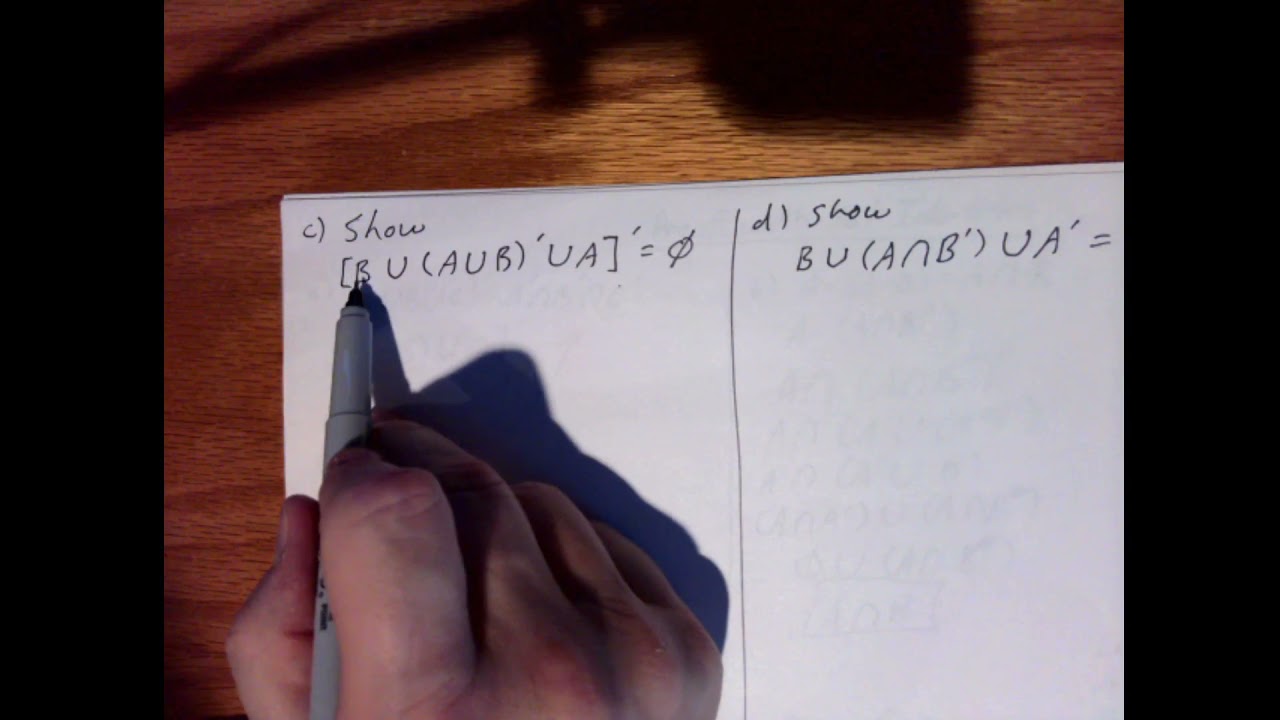 c) Show
[B ∪ (A∪B)′ ∪ A]′ = ∅
d) Show
B ∪ (A∩B′) ∪ A′ =